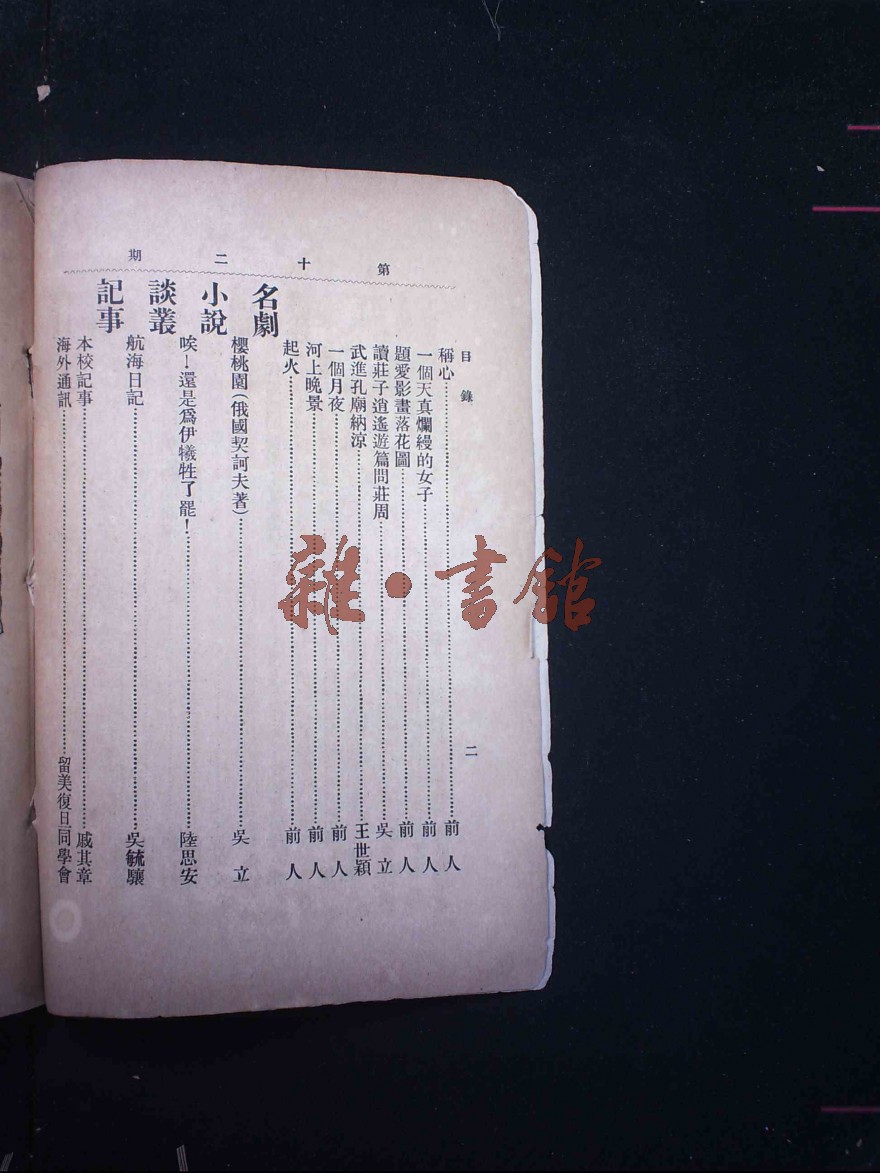 第十二期
目錄
二
稱心……前人
一個天真爛縵的女子……前人
題愛影畫落花圖……前人
讀莊子逍遙遊篇問莊周……吳立
武進孔廟納涼……王世穎
一個月夜……前人
河上晚景……前人
起火……前人
名劇
櫻桃園(俄國契訶夫著)……吳立
小說
唉!還是爲伊犧牲了罷!……陸思安
談叢
航海日記……吳毓驤
記事
本校記事……戚其章
海外通訊……留美復旦同學會
雜·書館